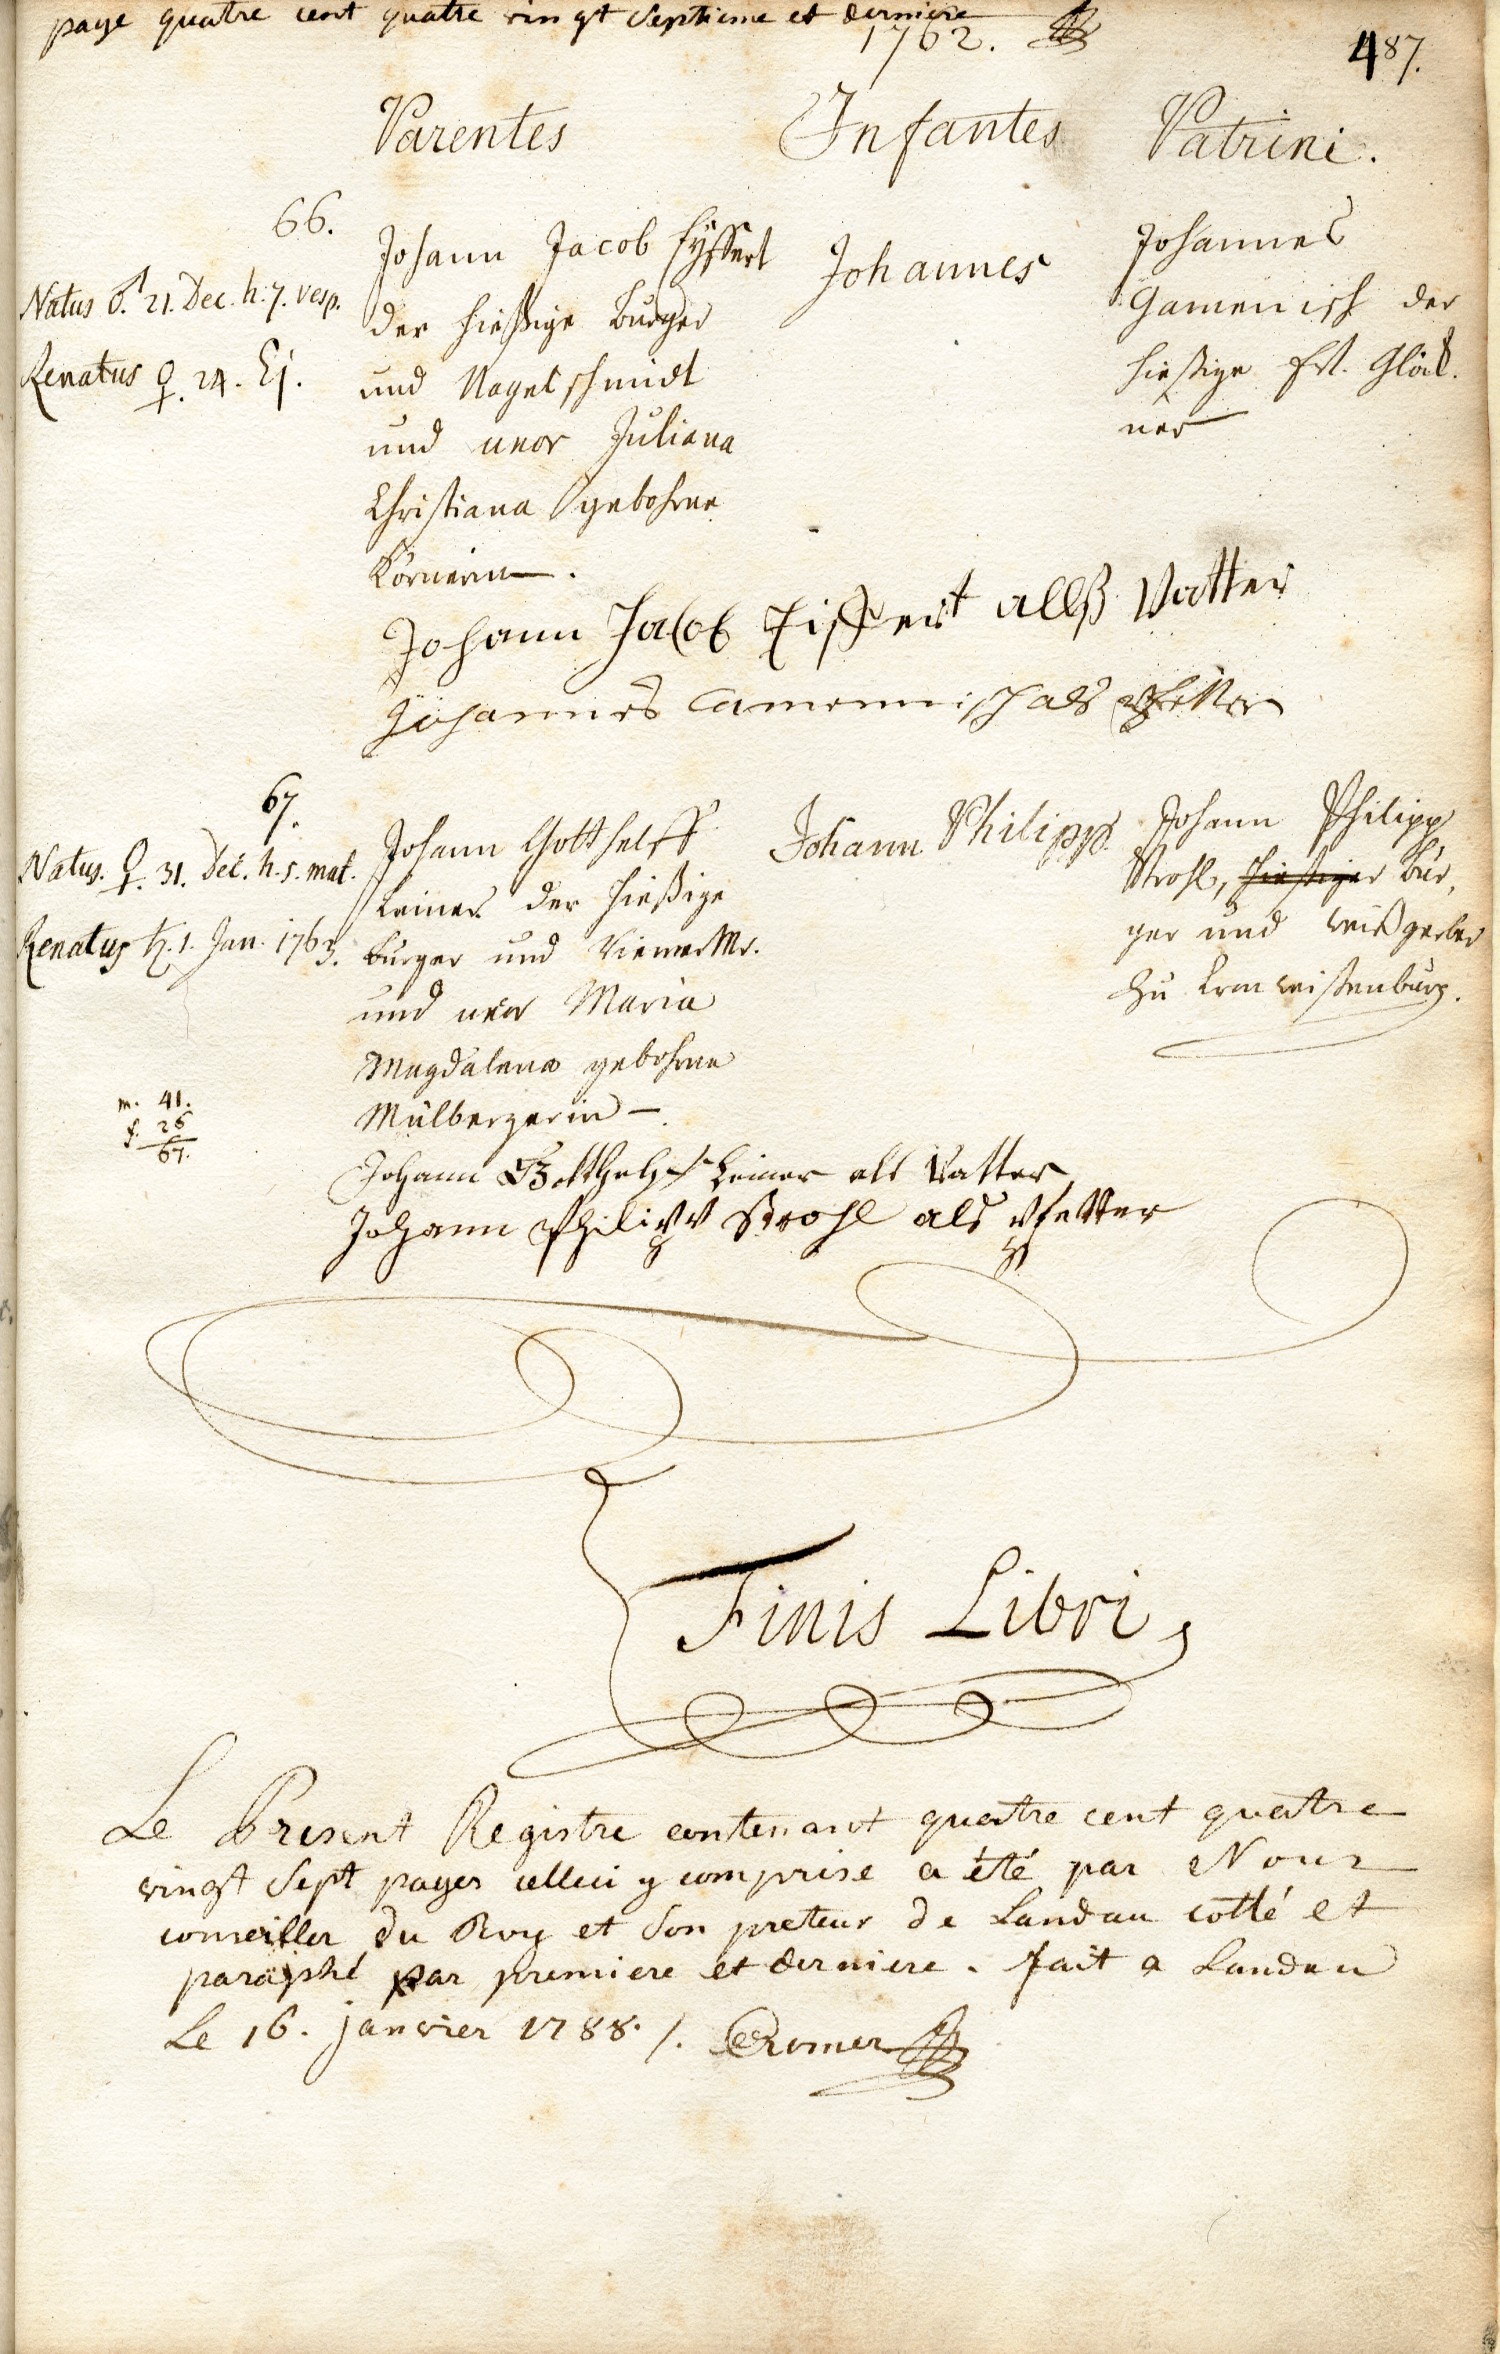 page quatre cent quatre vingt Septieme et derniere
1762.
487.
Parentes Infantes Patrini.
66.
Natus ♂. 21. Dec. h. 7. vesp.
Renatus ♀. 24. Ej.
Johann Jacob Eyssert
der hießige Burger
und Nagelschmidt
und uxor Juliana
Christiana gebohrne
Körnerin.
Johannes
Johannes
Gamenisch der
hießige Glöck-
ner
Johann Jacob Eissert allß Vatter
Johannes Camennisch als Pfetter
67.
Natus. ♀. 31. Dec. h. 5. mat.
Renatus ♄. 1. Jan. 1763.
Johann Gotthelff
Leiner der hießige
burger und
und uxor Maria
Magdalena gebohrne
Mülbergerin.
Johann Philipp
Johann Philipp
Strohl, hießiger Bur-
ger und weißgerber
zu Cron weißenburg.
m. 41.
f. 26
67.
Johann Gotthelf Leiner als Vatter
Johann Philipp Strohl als Pfetter
Finis Libri
Le Present Registre contenant quatre cent quatre
vingt Sept pages celleci y comprise a été par Nous
conseiller du Roy et Son preteur de Landau cotté et
paraphé par premiere et derniere. fait a Landau
Le 16. janvier 1788. /.